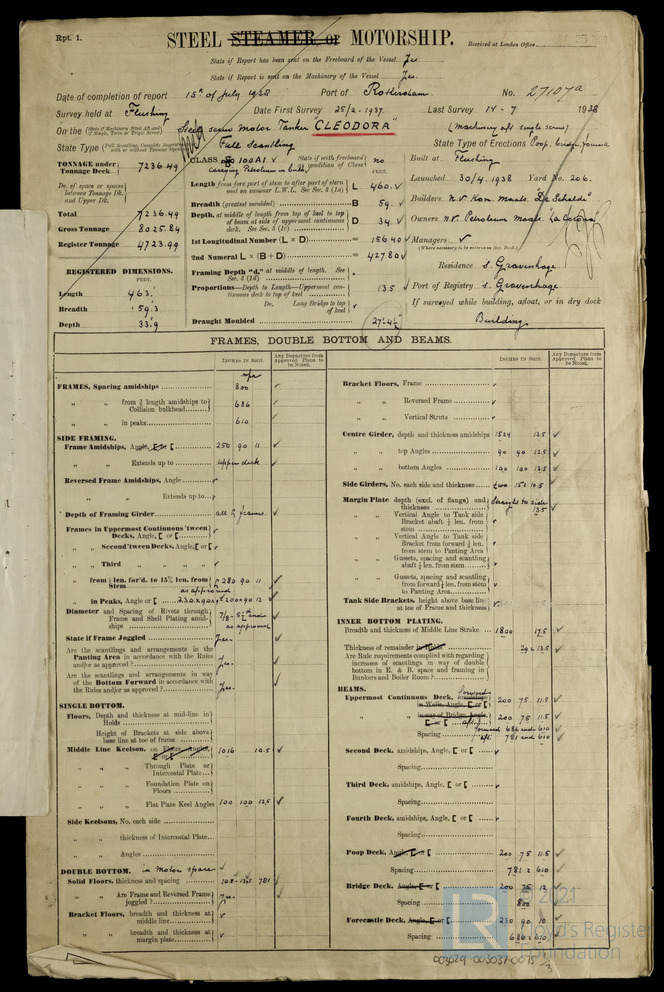 Rpt. 1.
STEEL STEAMER, or MOTORSHIP.
Received at London Office
State if Report has been sent on the Freeboard of the Vessel Yes
State if Report is sent on the Machinery of the Vessel Yes.
Date of completion of report 15th of July 1938 Port of Rotterdam No. 27107a
Survey held at Flushing Date First Survey 25/2-1937. Last Survey 14-7 1938
On the Steel screw Motor Tanker "CLEODORA" (Machinery aft single screw)
State Type Full Scantling State Type of Erections Poop, bridge, forecastle
TONNAGE under Tonnage Deck 7236.49
Do. of space or spaces between Tonnage Dk. and Upper Dk.
Total 7236.49
Gross Tonnage 8025.84
Register Tonnage 4723.99
REGISTERED DIMENSIONS.
FEET.
Length 463.
Breadth 59.3
Depth 33.9
CLASS 100A1 State if with freeboard as condition of Class no
Carrying Petroleum in bulk,
FEET.
Length from fore part of stem to after part of stern post on summer L.W.L. See Sec. 3 (1a) L 460.
Breadth (greatest moulded) B 59.
Depth, at middle of length from top of keel to top of beam at side of uppermost continuous deck. See Sec. 3 (1c) D 34.
1st Longitudinal Number (L × D) = 15640
2nd Numeral L × (B + D) = 42780
Framing Depth "d," at middle of length. See Sec. 3 (1d)
Proportions—Depth to Length—Uppermost continuous deck to top of keel 13.5
Do. Long Bridge to top of keel
Draught Moulded 27'-4½"
Built at Flushing
Launched 30/4-1938 Yard No. 206.
Builders N.V. Kon. Maats. "De Schelde"
Owners N.V. Petroleum Maats. La Corona
Managers
(Where necessary to be entered in Reg. Book.)
Residence s. Gravenhage
Port of Registry s. Gravenhage
If surveyed while building, afloat, or in dry dock
Building
FRAMES, DOUBLE BOTTOM AND BEAMS.
INCHES IN SHIP.
Any Departure from Approved Plans to be Noted.
INCHES IN SHIP.
Any Departure from Approved Plans to be Noted.
FRAMES, Spacing amidships 800
" " from ⅗ length amidships to Collision bulkhead 686
" " in peaks 610
SIDE FRAMING.
Frame Amidships, Angle, E or [ 250 90 11
" " Extends up to upper deck
Reversed Frame Amidships, Angle
" " Extends up to
Depth of Framing Girder
Frames in Uppermost Continuous 'tween Decks, Angle, [ or [
" " Second 'tween Decks, Angle, [ or [
" " Third " " " "
" " from ⅕ len. for'd. to 15% len. from Stem 280 90 11
as approved
" " in Peaks, Angle or [
Diameter and Spacing of Rivets through Frame and Shell Plating amidships
as approved
State if Frame Joggled Yes.
Are the scantlings and arrangements in the Panting Area in accordance with the Rules and/or as approved? Yes.
Are the scantlings and arrangements in way of the Bottom Forward in accordance with the Rules and/or as approved? Yes.
SINGLE BOTTOM.
Floors, Depth and thickness at mid-line in Holds
Height of Brackets at side above base line at toe of frame
Middle Line Keelson, on Floors, Angles, [ or [ 1016 10.5
" " Through Plate or Intercostal Plate
" " Foundation Plate on Floors
" " Flat Plate Keel Angles 100 100 12.5
Side Keelsons, No. each side
" " thickness of Intercostal Plate
" " Angles
DOUBLE BOTTOM. in Motor space
Solid Floors, thickness and spacing
" " Are Frame and Reversed Frame joggled? Yes.
Bracket Floors, breadth and thickness at middle line
" " breadth and thickness at margin plate
Bracket Floors, Frame
" " Reversed Frame
" " Vertical Struts
Centre Girder, depth and thickness amidships 1524 12.5
" " top Angles 90 90 12.5
" " bottom Angles 100 100 12.5
Side Girders, No. each side and thickness
Margin Plate depth (excl. of flange) and thickness Straight to side 13.5
" " Vertical Angle to Tank side Bracket abaft ¼ len. from stem
" " Vertical Angle to Tank side Bracket from forward ¼ len. from stem to Panting Area
" " Gussets, spacing and scantling abaft ¼ len. from stem
" " Gussets, spacing and scantling from forward ¼ len. from stem to Panting Area
Tank Side Brackets, height above base line at toe of Frame and thickness
INNER BOTTOM PLATING.
Breadth and thickness of Middle Line Strake 1800 17.5
Thickness of remainder in Holds
Are Rule requirements complied with regarding increases of scantlings in way of double bottom in E. & B. space and framing in Bunkers and Boiler Room?
BEAMS.
Uppermost Continuous Deck, amidships forward
in Wells, Angle, [ or [ 200 75 11.5
" " in way of Bridge, Angle, [ or [ aft. 200 75 11.5
Spacing forward 686 and 610
aft. 781 and 610
Second Deck, amidships, Angle, [ or [
Spacing
Third Deck, amidships, Angle, [ or [
Spacing
Fourth Deck, amidships, Angle, [ or [
Spacing
Poop Deck, Angle, [ or [ 200 75 11.5
Spacing 781 & 610
Bridge Deck, Angle, [ or [ 200 75 12
Spacing 800
Forecastle Deck, Angle, [ or [ 230 90 10
Spacing 686 & 610
© 2021
Lloyd's Register
Foundation
003029-003037-0015